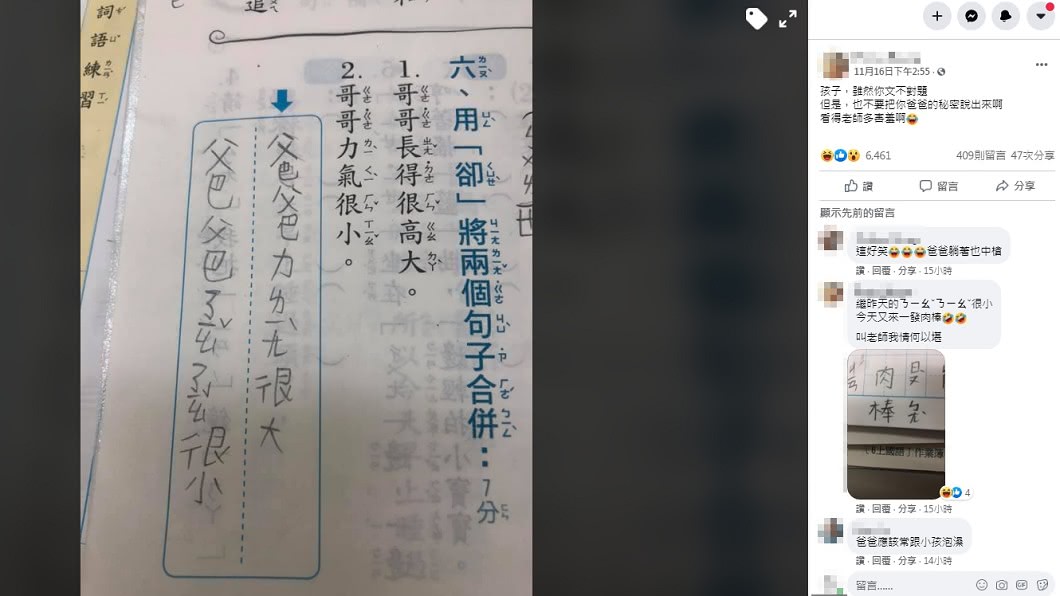 詞
語
練
習
六、用「卻」將兩個句子合併：7分
1.哥哥長得很高大。
2.哥哥力氣很小。
父爸父爸力ㄌㄧㄤˋ很大
父爸父爸ㄋㄧㄠˇㄋㄧㄠˇ很小
11月16日下午2:55
孩子，雖然你文不對題
但是，也不要把你爸爸的秘密說出來啊
看得老師多害羞啊😂
6,461
409則留言 47次分享
讚 留言 分享
顯示先前的留言
這好笑😂😂😂爸爸躺著也中槍
讚・回覆・分享・15小時
繼昨天的ㄋㄧㄠˇㄋㄧㄠˇ很小
今天又來一發肉棒🤣🤣
叫老師我情何以堪
肉
棒
4
讚・回覆・分享・15小時
爸爸應該常跟小孩泡澡
讚・回覆・分享・14小時
留言......